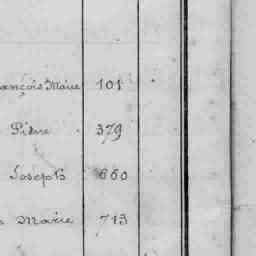 ançois Marie 101
Pierre 379
Joseph 660
s Marie 713